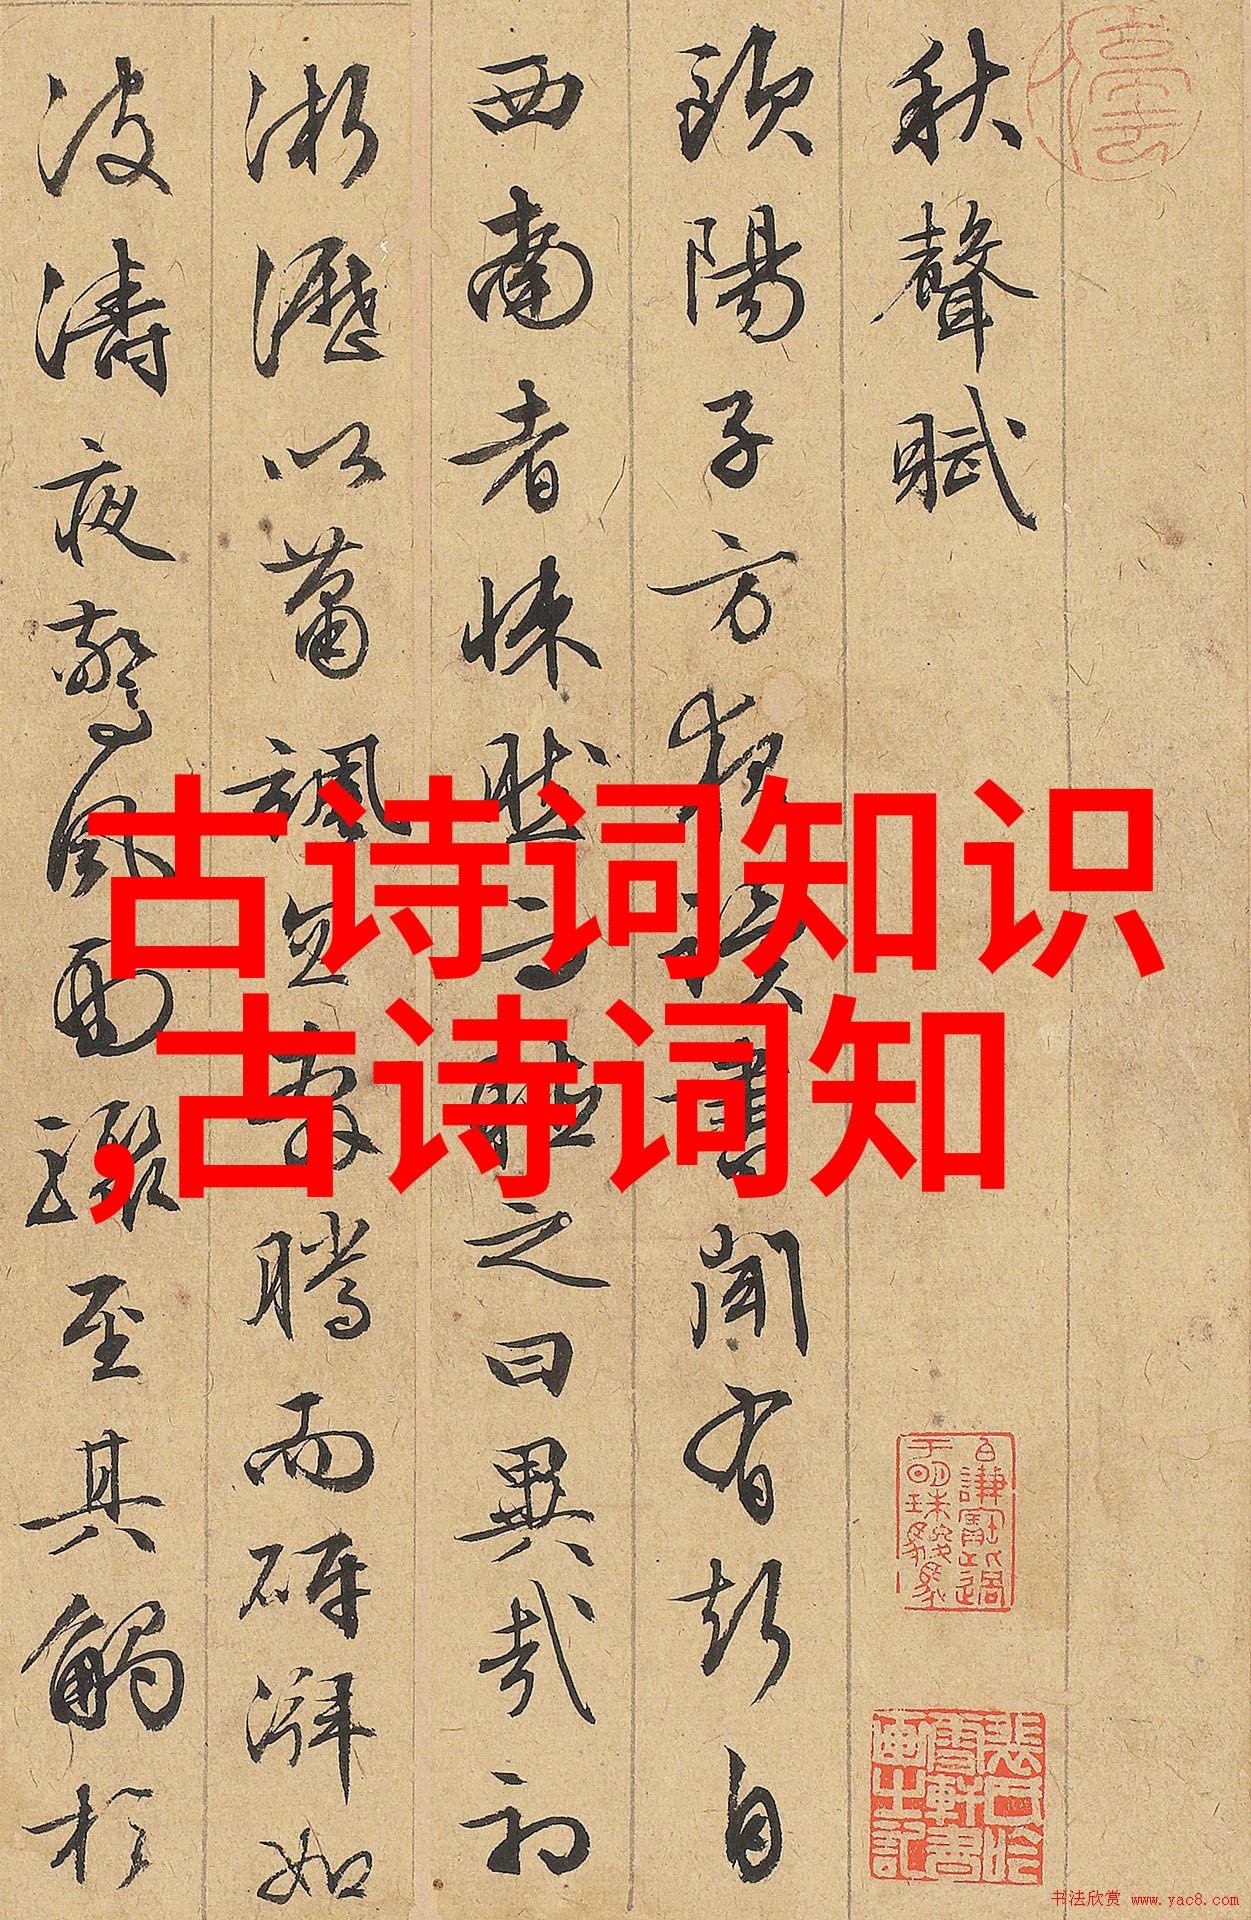 秋聲賦
歐陽子方夜讀書聞有聲自
西南者悚然而聽之曰異哉初
淅瀝以蕭颯忽奔騰而砰湃如
波濤夜驚風雨驟至其觸於
古诗词知识
,古诗词知
书法欣赏 www.yac8.com